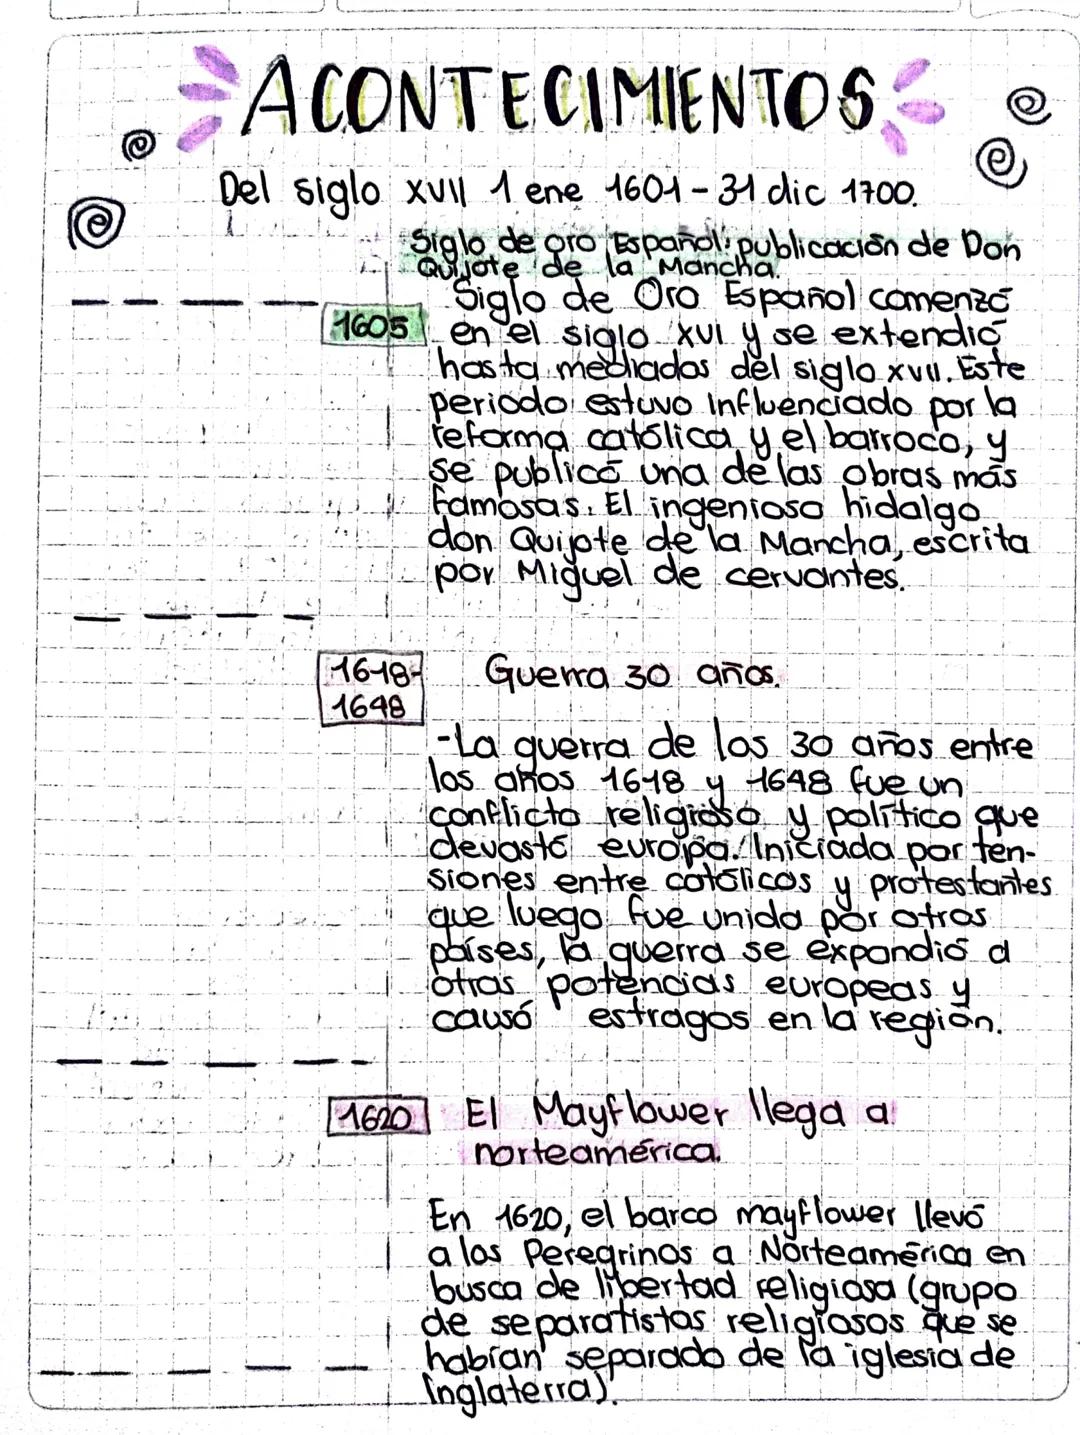 ACONTECIMIENTOS
Del siglo XVII 1 ene 1601-31 dic 1700.
Siglo de oro Español: publicación de Don
Quijote de la Mancha.
1605
Siglo de Oro Español comenzó
en el siglo XVI y se extendió
hasta mediados del siglo XVII. Este
periodo estuvo influenciado por la
reforma católica y el barroco, y
se publicó una de las obras más
famosas. El ingenioso hidalgo
don Quijote de la Mancha, escrita
por Miguel de cervantes.
1618-
1648
Guerra 30 años.
-La guerra de los 30 años entre
los años 1618 y 1648 fue un
conflicto religioso y político que
devastó europa. Iniciada por ten-
siones entre católicos y protestantes
que luego fue unida por otros
países, la guerra se expandió a
otras potencias europeas y
causó estragos en la región.
1620
El Mayflower llega a
norteamérica.
En 1620, el barco mayflower llevó
a los Peregrinos a Norteamérica en
busca de libertad religiosa (grupo
de separatistas religiosos que se
habían separado de la iglesia de
inglaterra).